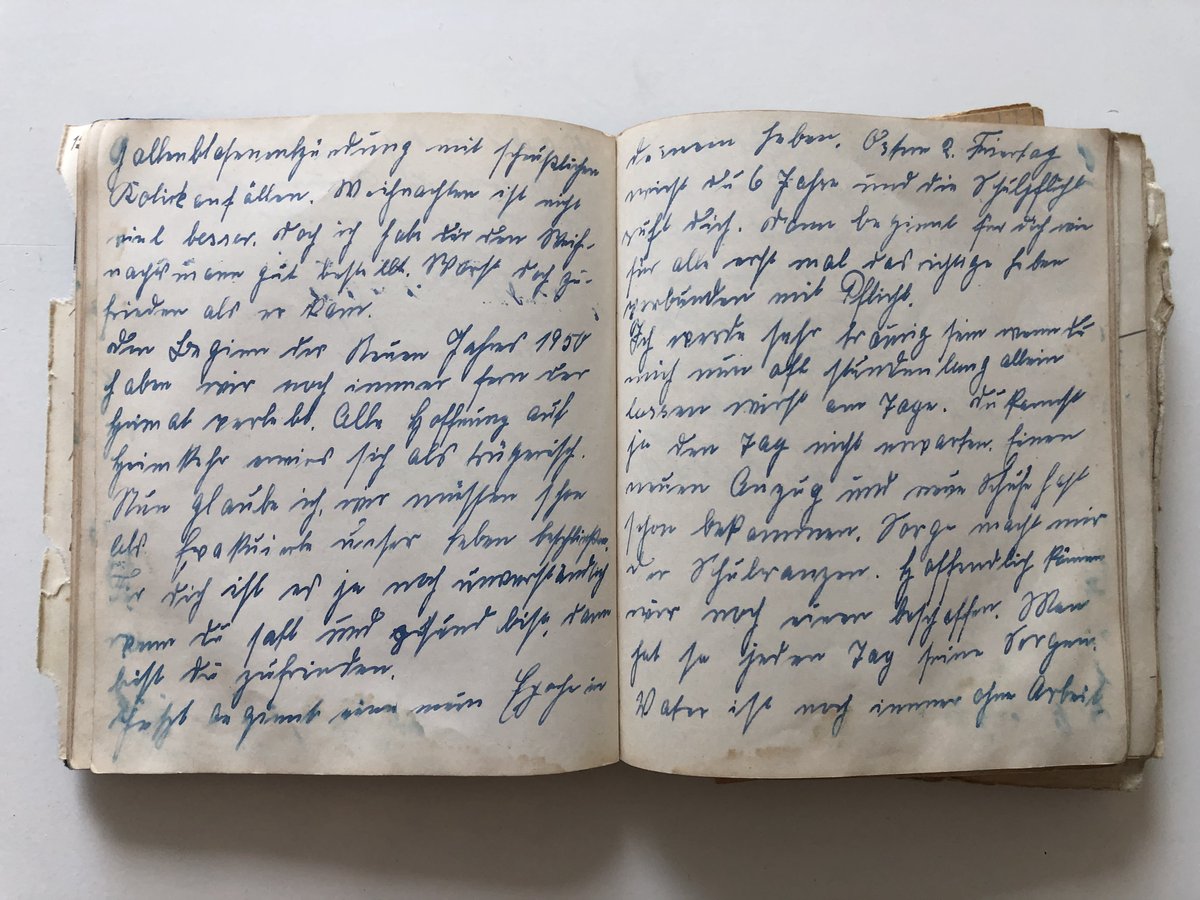 Gallenblasenentzündung mit scheußlichen
Kolikanfällen. Weihnachten ist nicht
viel besser. Doch ich habe dir den Weih-
nachtsmann gut bestellt. Warst doch zu-
frieden als er kam.
Den Beginn des Neuen Jahres 1950
haben wir noch immer fern der
Heimat verlebt. Alle Hoffnung auf
Heimkehr erwies sich als trügerisch.
Nun glaube ich, wir müssen schon
als Evakuierte unser Leben beschließen.
Für dich ist es ja noch unverständlich
wenn du satt und gesund bist, dann
bist du zufrieden.
Jetzt beginnt eine neue Epoche in
deinem Leben. Ostern 2. Feiertag
wirst du 6 Jahre und die Schulpflicht
ruft dich. Dann beginnt für dich wie
für alle erst mal das richtige Leben
verbunden mit Pflicht.
Ich werde sehr traurig sein wenn du
mich nun oft stundenlang allein
lassen wirst am Tage. Du kannst
ja den Tag nicht erwarten. Einen
neuen Anzug und neue Schuhe hast
schon bekommen. Sorge macht mir
der Schulranzen. Hoffendlich können
wir noch einen beschaffen. Man
hat so jeden Tag seine Sorgen.
Vater ist noch immer ohne Arbeit.